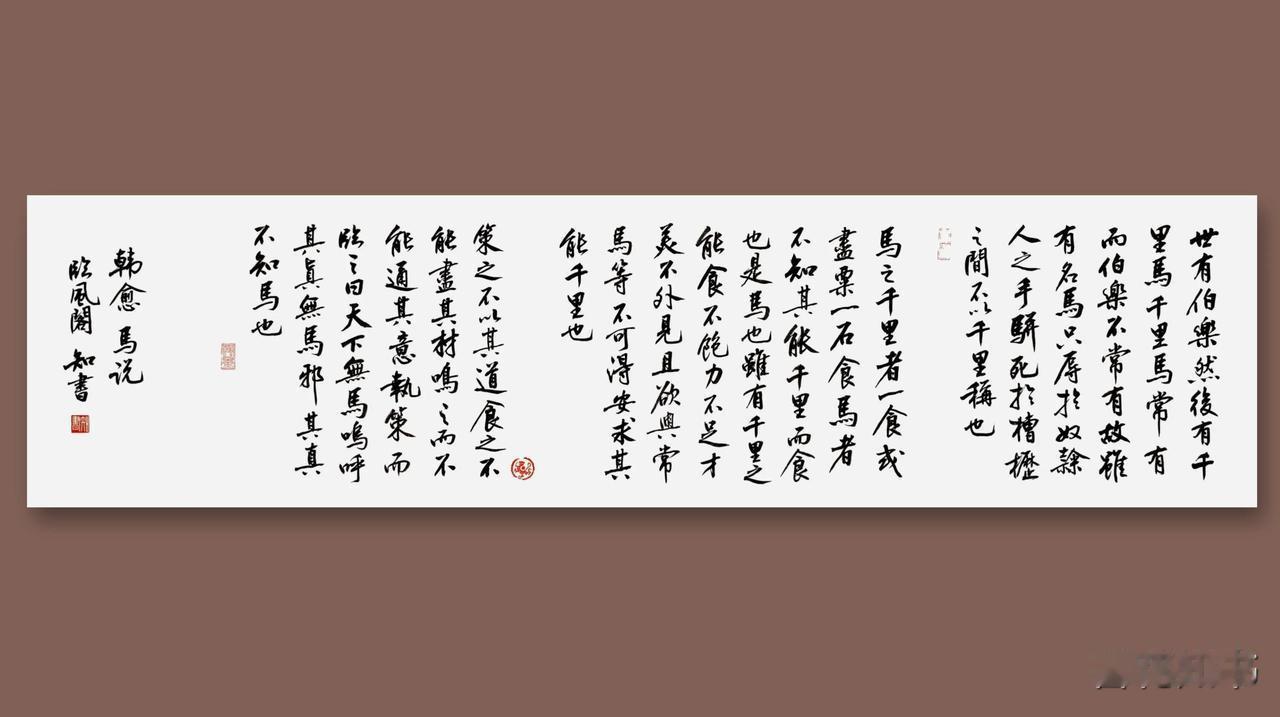 世有伯樂然後有千
里馬千里馬常有
而伯樂不常有故雖
有名馬只辱於奴隸
人之手駢死於槽櫪
之間不以千里稱也
馬之千里者一食或
盡粟一石食馬者
不知其能千里而食
也是馬也雖有千里之
能食不飽力不足才
美不外見且欲與常
馬等不可得安求其
能千里也
策之不以其道食之不
能盡其材鳴之而不
能通其意執策而
臨之曰天下無馬嗚呼
其真無馬邪其真
不知馬也
韓愈 馬说
臨風閣 知書